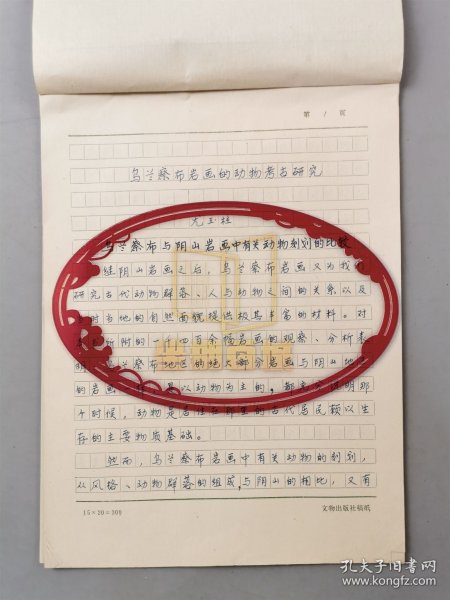 第 1 页
乌兰察布岩画的动物考古研究
尤玉柱
乌兰察布与阴山岩画中有关动物刻划的比较
继阴山岩画之后，乌兰察布岩画又为我
研究古代动物群落、人与动物之间的关系以及
时当地的自然面貌提供极其丰富的材料。对
所附的一千四百余幅岩画的观察、分析表
兰察布地区的绝大部分岩画与阴山地
的岩画 是以动物为主的，都充分说明那
个时候，动物是居住在那里的古代居民赖以生
存的主要物质基础。
然而，乌兰察布岩画中有关动物的刻划，
从风格、动物群落的组成，与阴山的相比，又有
15×20=300
文物出版社稿纸
孔夫子旧书网
www.kongfz.com